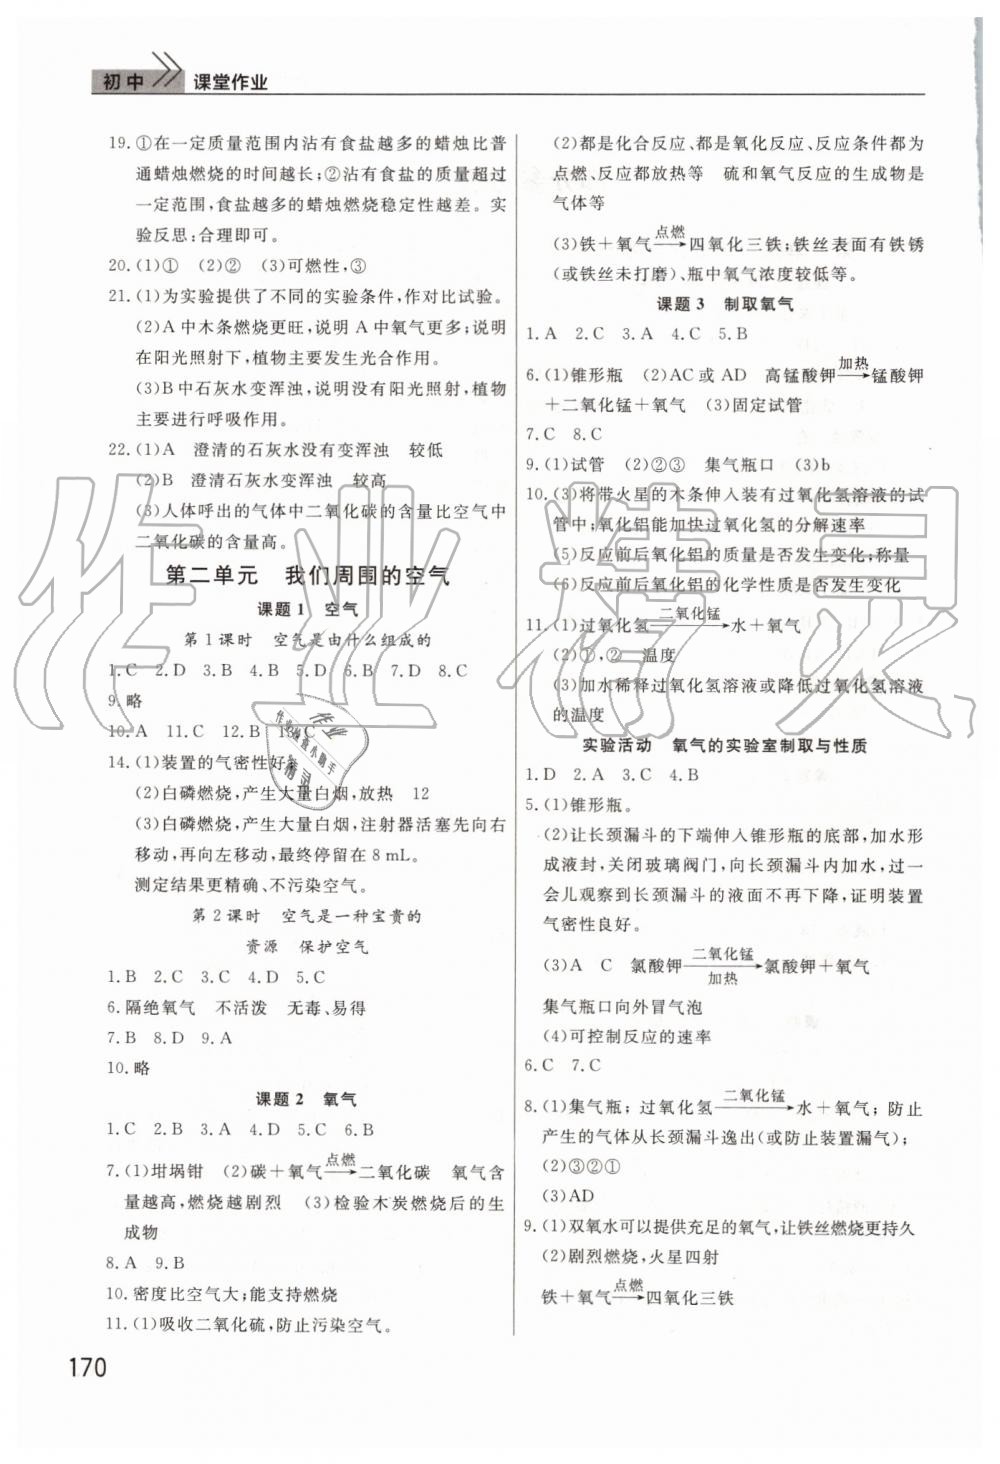 初中 课堂作业
19. ①在一定质量范围内沾有食盐越多的蜡烛比普
通蜡烛燃烧的时间越长;②沾有食盐的质量超过
一定范围,食盐越多的蜡烛燃烧稳定性越差。实
验反思:合理即可。
20. (1)① (2)② (3)可燃性,③
21. (1)为实验提供了不同的实验条件,作对比试验。
(2)A中木条燃烧更旺,说明A中氧气更多;说明
在阳光照射下,植物主要发生光合作用。
(3)B中石灰水变浑浊,说明没有阳光照射,植物
主要进行呼吸作用。
22. (1)A 澄清的石灰水没有变浑浊 较低
(2)B 澄清石灰水变浑浊 较高
(3)人体呼出的气体中二氧化碳的含量比空气中
二氧化碳的含量高。
第二单元 我们周围的空气
课题1 空气
第1课时 空气是由什么组成的
1. C 2. D 3. B 4. B 5. D 6. B 7. D 8. C
9. 略
10. A 11. C 12. B 13. C
14. (1)装置的气密性好
(2)白磷燃烧,产生大量白烟,放热 12
(3)白磷燃烧,产生大量白烟,注射器活塞先向右
移动,再向左移动,最终停留在8 mL。
测定结果更精确、不污染空气。
第2课时 空气是一种宝贵的
资源 保护空气
1. B 2. C 3. C 4. D 5. C
6. 隔绝氧气 不活泼 无毒、易得
7. B 8. D 9. A
10. 略
课题2 氧气
1. C 2. B 3. A 4. D 5. C 6. B
7. (1)坩埚钳 (2)碳+氧气 点燃→ 二氧化碳 氧气含
量越高,燃烧越剧烈 (3)检验木炭燃烧后的生
成物
8. A 9. B
10. 密度比空气大;能支持燃烧
11. (1)吸收二氧化硫,防止污染空气。
170
(2)都是化合反应、都是氧化反应、反应条件都为
点燃、反应都放热等 硫和氧气反应的生成物是
气体等
(3)铁+氧气 点燃→ 四氧化三铁;铁丝表面有铁锈
(或铁丝未打磨)、瓶中氧气浓度较低等。
课题3 制取氧气
1. A 2. C 3. A 4. C 5. B
6. (1)锥形瓶 (2)AC或AD 高锰酸钾 加热→ 锰酸钾
+二氧化锰+氧气 (3)固定试管
7. C 8. C
9. (1)试管 (2)②③ 集气瓶口 (3)b
10. (3)将带火星的木条伸入装有过氧化氢溶液的试
管中;氧化铝能加快过氧化氢的分解速率
(5)反应前后氧化铝的质量是否发生变化;称量
(6)反应前后氧化铝的化学性质是否发生变化
11. (1)过氧化氢 二氧化锰→ 水+氧气
(2)①,② 温度
(3)加水稀释过氧化氢溶液或降低过氧化氢溶液
的温度
实验活动 氧气的实验室制取与性质
1. D 2. A 3. C 4. B
5. (1)锥形瓶。
(2)让长颈漏斗的下端伸入锥形瓶的底部,加水形
成液封,关闭玻璃阀门,向长颈漏斗内加水,过一
会儿观察到长颈漏斗的液面不再下降,证明装置
气密性良好。
(3)A C 氯酸钾 二氧化锰/加热→ 氯酸钾+氧气
集气瓶口向外冒气泡
(4)可控制反应的速率
6. C 7. C
8. (1)集气瓶;过氧化氢 二氧化锰→ 水+氧气;防止
产生的气体从长颈漏斗逸出(或防止装置漏气);
(2)③②①
(3)AD
9. (1)双氧水可以提供充足的氧气,让铁丝燃烧更持久
(2)剧烈燃烧,火星四射
铁+氧气 点燃→ 四氧化三铁
作业精灵